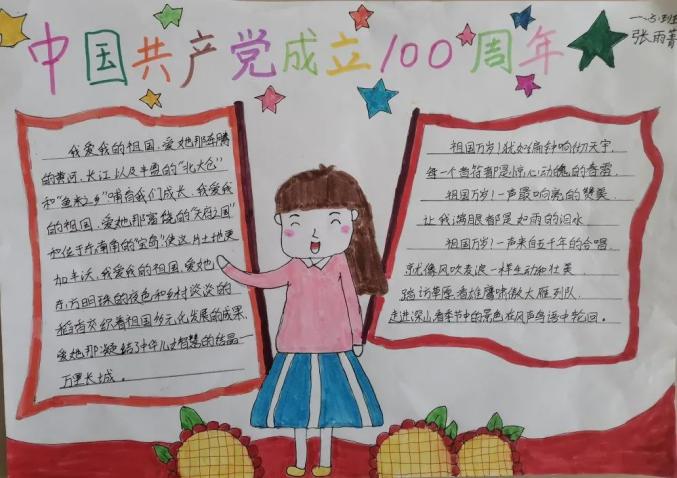 中国共产党成立100周年
一.5班
张雨菁
我爱我的祖国,爱她那奔腾
的黄河、长江以及丰盈的“北大仓”
和“鱼米之乡”哺育我们成长,我爱我
的祖国,爱她那富饶的“天府之国”
和位于东南南的“宝岛”使这片土地更
加丰沃,我爱我的祖国,爱她
东方明珠的夜色和乡村淡淡的
稻香交织着祖国多元化发展的成果,
爱她那凝结了中华儿女智慧的结晶—
万里长城。
祖国万岁!犹如扁钟响彻天宇
每一个音符都是惊心动魄的春雷
祖国万岁!一声最响亮的赞美
让我满眼都是如雨的泪水
祖国万岁!一声来自五千年的合唱
就像风吹麦浪一样生动和壮美
踏访草原看雄鹰啸傲大雁列队
走进深山看季节中的景色在风声鸟语中轮回。